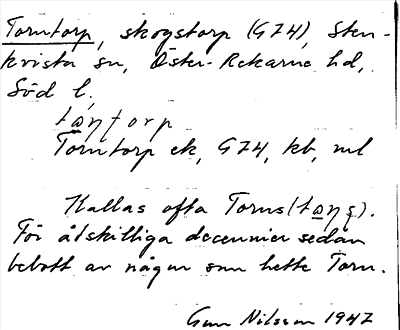 Torntorp, skogstorp (G74), Sten-
kvista sn, Öster-Rekarne hd,
Söd l.
taņtorp
Torntorp ek, G74, kb, ml
Kallas ofta Torns (taņs).
För åtskilliga decennier sedan
bebott av någon som hette Torn.
Gun Nilsson 1947